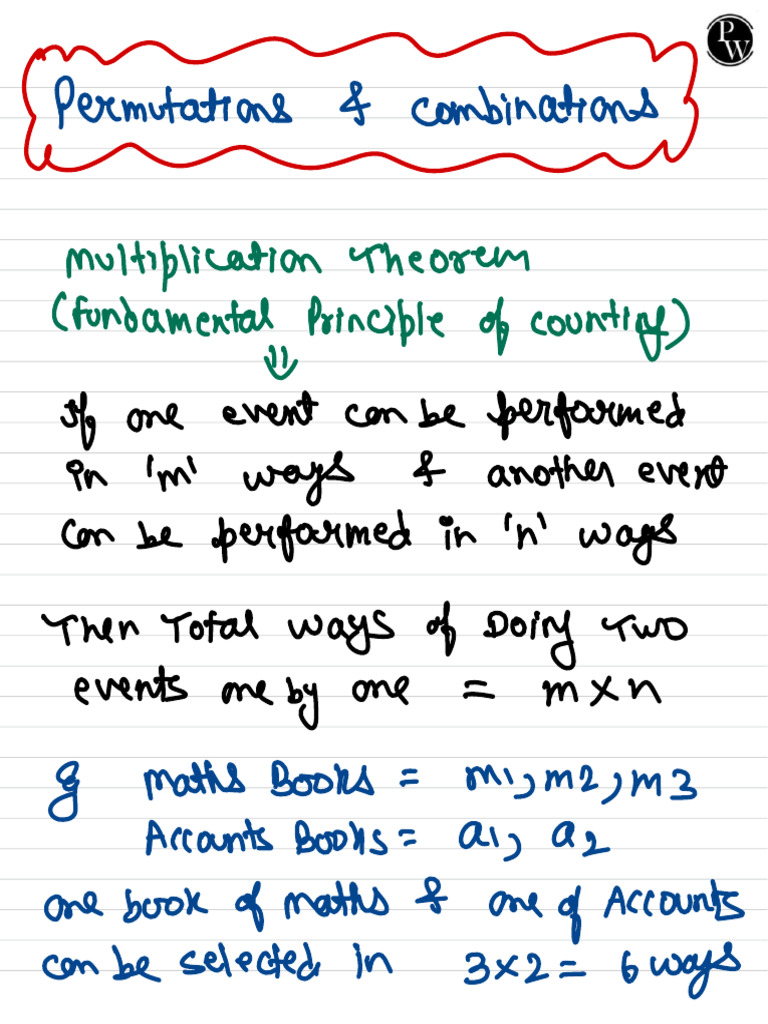 PW
Permutations & combinations
Multiplication Theorem
(fundamental Principle of counting)
⇓
If one event can be performed
in 'm' ways & another event
can be performed in 'n' ways
Then Total ways of Doing Two
events one by one = m×n
eg Maths Books = m1, m2, m3
Accounts Books = a1, a2
one book of maths & one of Accounts
can be selected in 3×2 = 6 ways